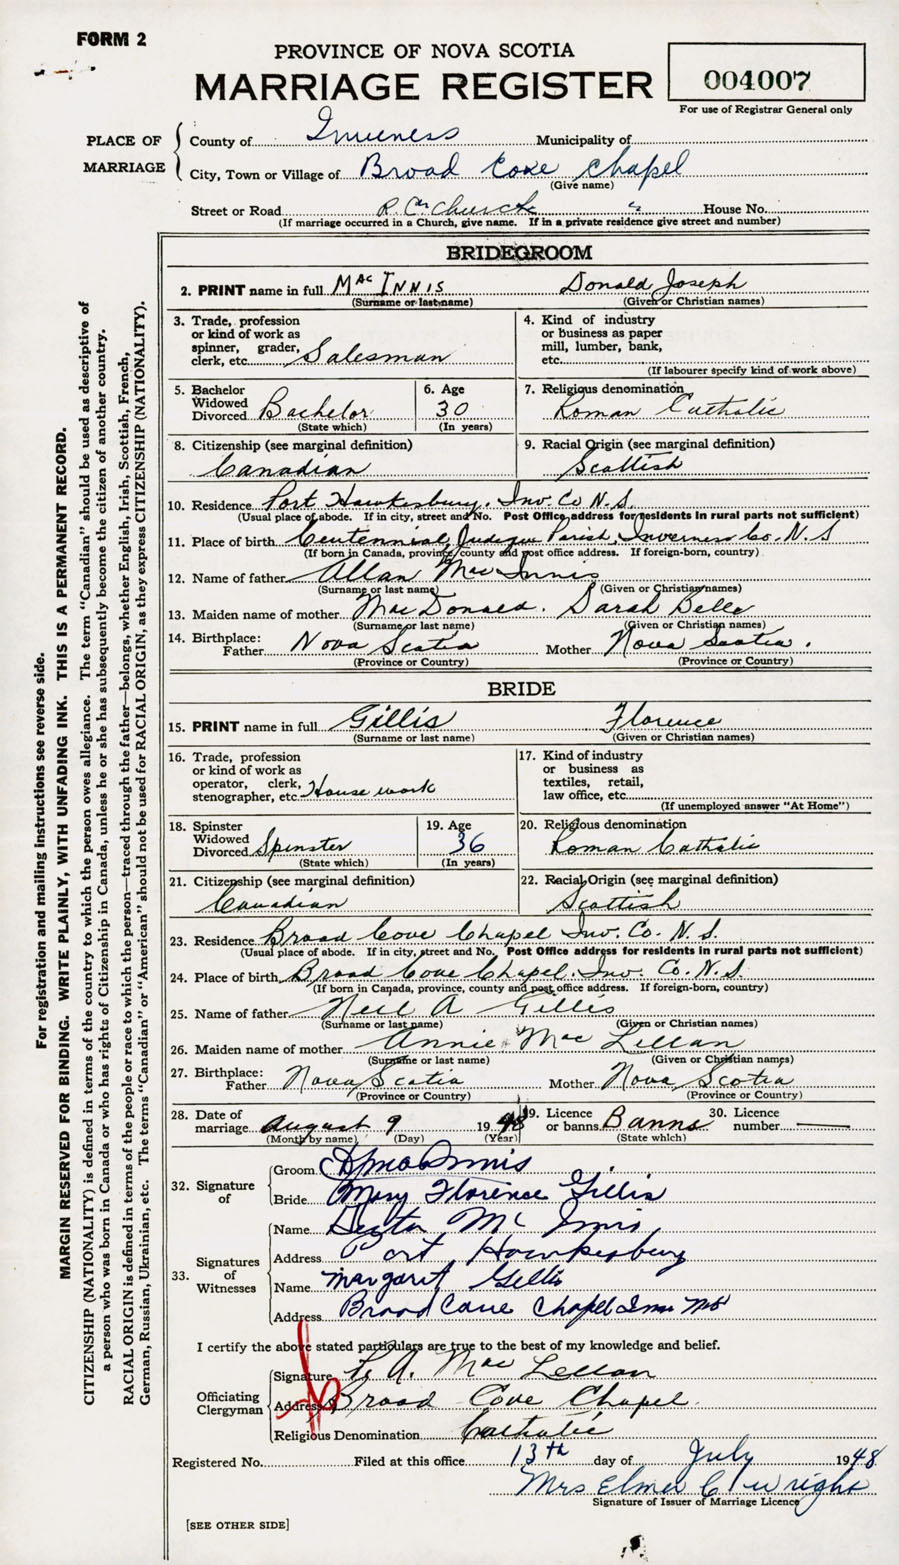 FORM 2
PROVINCE OF NOVA SCOTIA
MARRIAGE REGISTER
004007
For use of Registrar General only
PLACE OF MARRIAGE
County of Inverness Municipality of
City, Town or Village of Broad Cove Chapel
(Give name)
Street or Road R.C. Church " House No.
(If marriage occurred in a Church, give name. If in a private residence give street and number)
BRIDEGROOM
2. PRINT name in full MacInnis Donald Joseph
(Surname or last name) (Given or Christian names)
3. Trade, profession or kind of work as spinner, grader, clerk, etc. Salesman
4. Kind of industry or business as paper mill, lumber, bank, etc.
(If labourer specify kind of work above)
5. Bachelor Widowed Divorced Bachelor
(State which)
6. Age 30
(In years)
7. Religious denomination
Roman Catholic
8. Citizenship (see marginal definition)
Canadian
9. Racial Origin (see marginal definition)
Scottish
10. Residence Port Hawkesbury, Inv. Co N.S.
(Usual place of abode. If in city, street and No. Post Office address for residents in rural parts not sufficient)
11. Place of birth Centennial, Judique Parish, Inverness Co. N.S
(If born in Canada, province, county and post office address. If foreign-born, country)
12. Name of father Allan Mac Innis
(Surname or last name) (Given or Christian names)
13. Maiden name of mother MacDonald. Sarah Belle
(Surname or last name) (Given or Christian names)
14. Birthplace: Father Nova Scotia Mother Nova Scotia.
(Province or Country) (Province or Country)
BRIDE
15. PRINT name in full Gillis Florence
(Surname or last name) (Given or Christian names)
16. Trade, profession or kind of work as operator, clerk, stenographer, etc. House work
17. Kind of industry or business as textiles, retail, law office, etc.
(If unemployed answer "At Home")
18. Spinster Widowed Divorced Spinster
(State which)
19. Age 36
(In years)
20. Religious denomination
Roman Catholic
21. Citizenship (see marginal definition)
Canadian
22. Racial Origin (see marginal definition)
Scottish
23. Residence Broad Cove Chapel Inv. Co. N.S.
(Usual place of abode. If in city, street and No. Post Office address for residents in rural parts not sufficient)
24. Place of birth Broad Cove Chapel, Inv. Co. N.S.
(If born in Canada, province, county and post office address. If foreign-born, country)
25. Name of father Neil A Gillis
(Surname or last name) (Given or Christian names)
26. Maiden name of mother Annie Mac Lellan
(Surname or last name) (Given or Christian names)
27. Birthplace: Father Nova Scotia Mother Nova Scotia
(Province or Country) (Province or Country)
28. Date of marriage August 9 1948
(Month by name) (Day) (Year)
29. Licence or banns Banns
(State which)
30. Licence number —
32. Signature of
Groom
Bride Mary Florence Gillis
33. Signatures of Witnesses
Name Mc Innis
Address Port Hawkesbury
Name Margaret Gillis
Address Broad Cove Chapel
I certify the above stated particulars are true to the best of my knowledge and belief.
Officiating Clergyman
Signature A. Mac Lellan
Address Broad Cove Chapel.
Religious Denomination Catholic
Registered No. Filed at this office 13th day of July 1948
Mrs Elmer C Wright
Signature of Issuer of Marriage Licence
[SEE OTHER SIDE]
For registration and mailing instructions see reverse side.
MARGIN RESERVED FOR BINDING. WRITE PLAINLY, WITH UNFADING INK. THIS IS A PERMANENT RECORD.
CITIZENSHIP (NATIONALITY) is defined in terms of the country to which the person owes allegiance. The term "Canadian" should be used as descriptive of
a person who was born in Canada or who has rights of Citizenship in Canada, unless he or she has subsequently become the citizen of another country.
RACIAL ORIGIN is defined in terms of the people or race to which the person—traced through the father—belongs, whether English, Irish, Scottish, French,
German, Russian, Ukrainian, etc. The terms "Canadian" or "American" should not be used for RACIAL ORIGIN, as they express CITIZENSHIP (NATIONALITY).